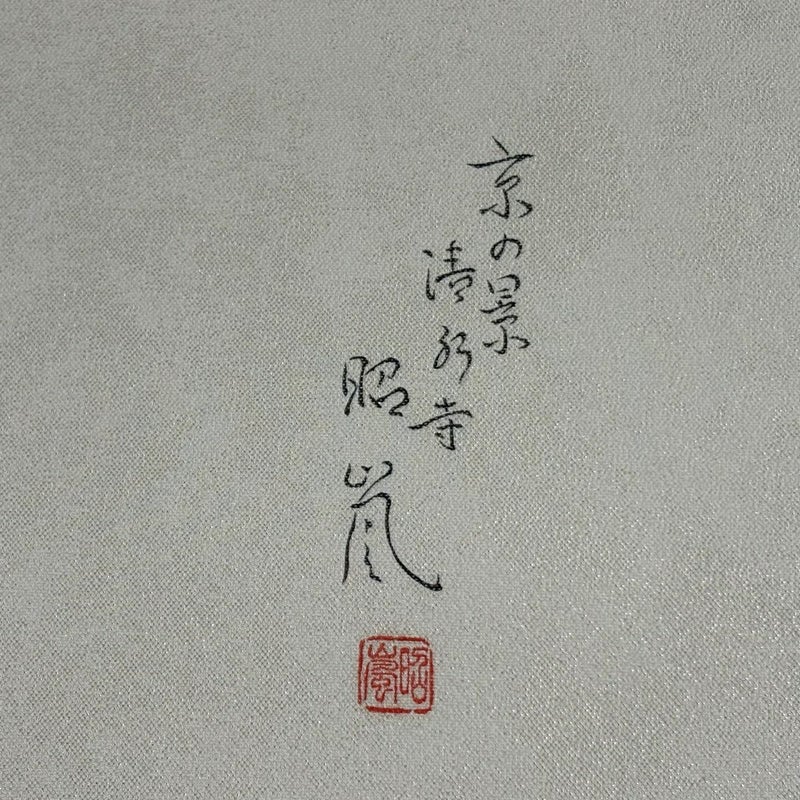 京の景
清水寺
昭嵐
昭嵐